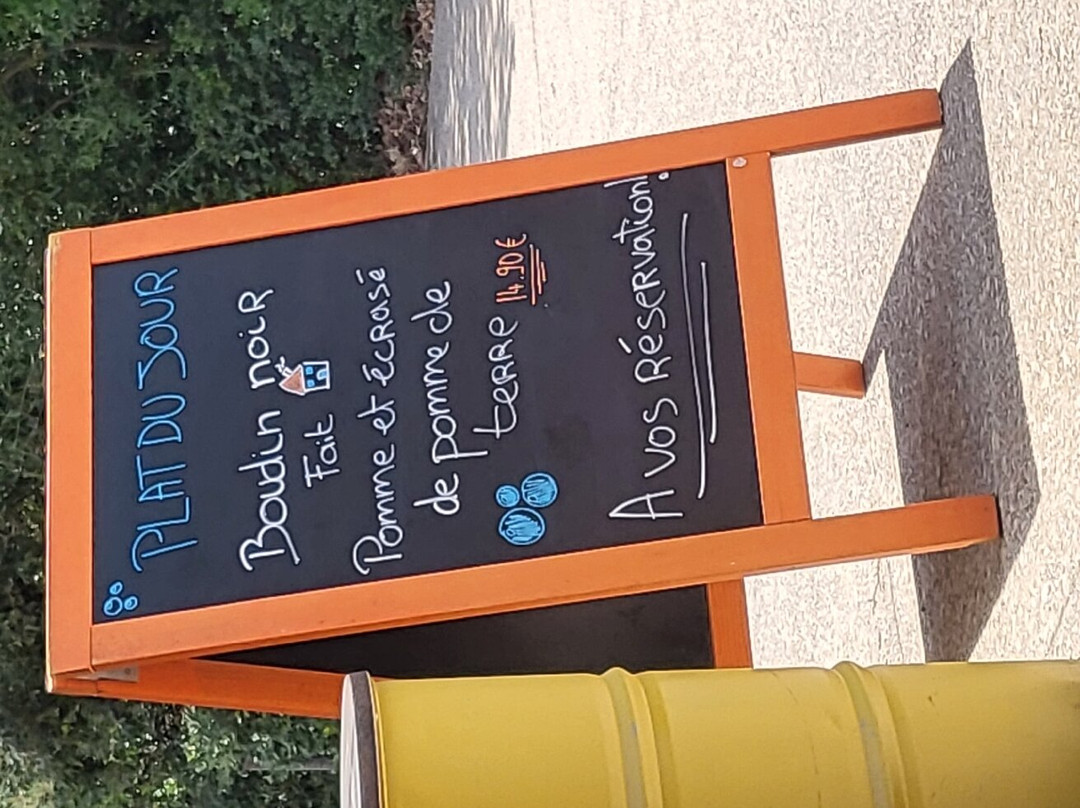 PLAT DU JOUR
Boudin noir
Fait
Pomme et écrasé
de pomme de
terre 14.90€
A vos réservation!